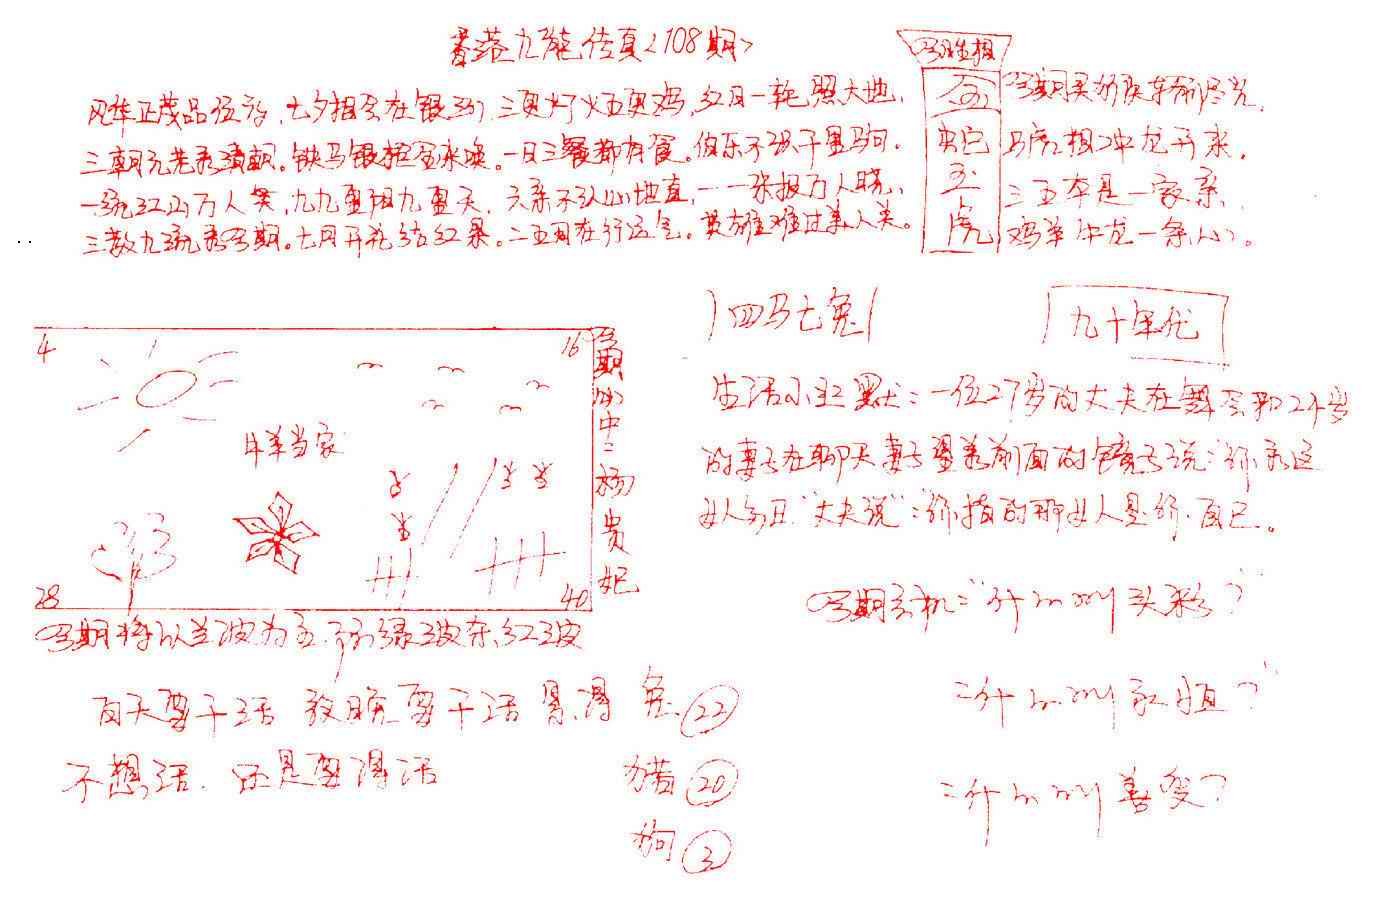 香港九龙传真<108期>
风华正茂品位高,七夕相会在银河,三更灯火五更鸡,红日一轮照大地,
三朝元老表清朝。铁马银枪金来唤。一日三餐都有餐。伯乐不识千里马的.
一统江山万人笑,九九重阳九重天,六亲不认山地直,一张报万人晓,
三教九流看今期。七月开花结红果。二五月在行运气。英雄难过美人关。
今期生相
蛇
五
虎
马虎相冲龙开来,
三五本是一家亲,
鸡羊冲龙一条心。
四马七兔
九十年代
4
16
牛羊当家
28
40
今期必中:杨贵妃
今期将以兰波为主.防绿波东,红波
生活小幽默:一位27岁的丈夫在舞会和24岁
的妻子在聊天妻子望着前面的镜子说:你看这
女人多丑"丈夫说":你指的那女人是你.自己。
今期玄机:"什么叫头彩?
:什么叫永恒?
:什么叫善变?
白天要干活 放晚要干活 累.得 兔 22
不想活.还是要得活
猪 20
狗 3